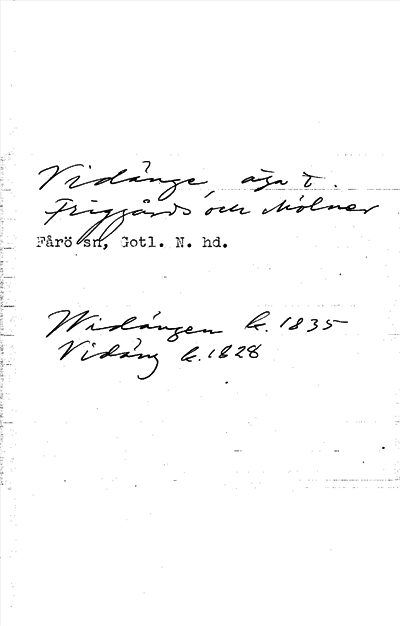 Vidånge, äga t.
Friggårds och Mölner
Fårö sn, Gotl. N. hd.
Widången k. 1835
Vidång k. 1828